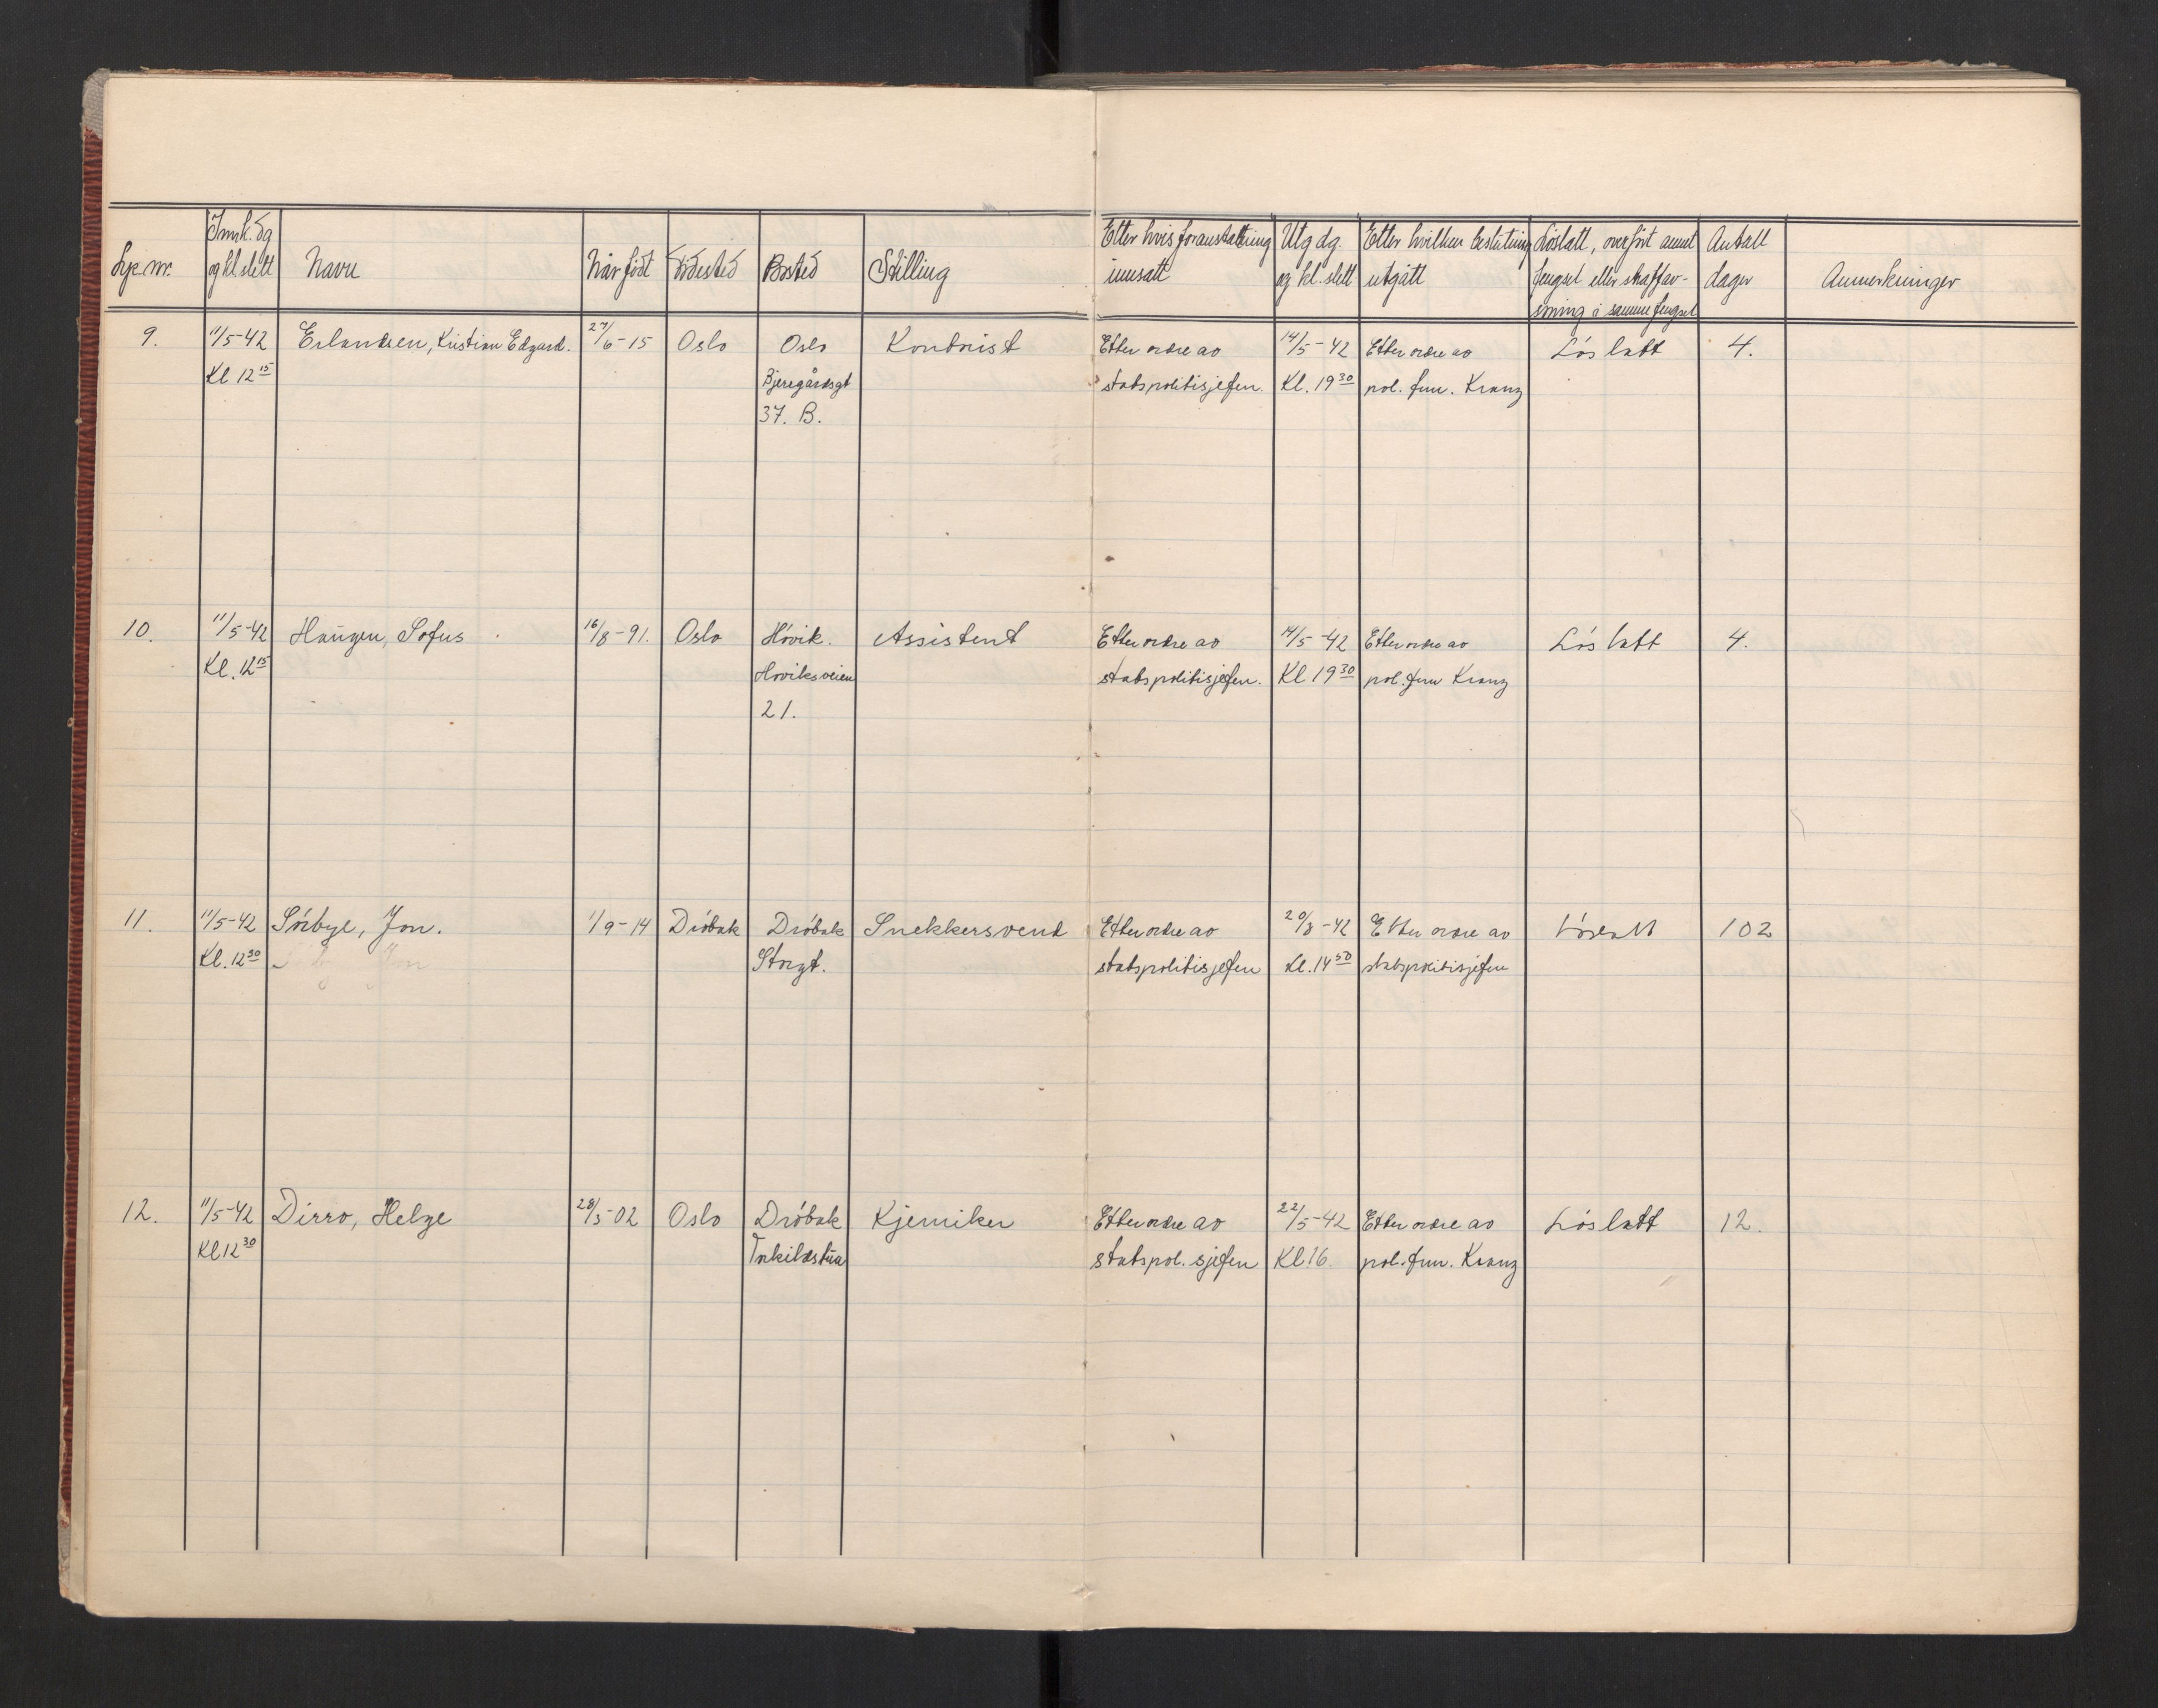 Lnp. nr. Innk. dg og kl. slett Navn Når født Fødested Bosted Stilling Etter hvis foranstaltning innsatt Utg dg. og kl. slett Etter hvilken beslutning utgått Løslatt, overført annet fengsel eller straffavsoning i samme fengsel Antall dager Anmerkninger
9. 11/5-42 Erlandsen, Kristian Edgard. 27/6-15 Oslo Oslo Kontorist Etter ordre av 14/5-42 Etter ordre av Løslatt 4.
Kl 12 15 Bjeregårdsgt statspolitisjefen. Kl. 19 30 pol. fm. Kranz
37. B.
10. 11/5-42 Haugen, Sofus 16/8-91. Oslo Høvik. Assistent Etter ordre av 14/5-42 Etter ordre av Løslatt 4.
Kl. 12 15 Høviksveien statspolitisjefen. Kl 19 30 pol. fm Kranz
21.
11. 11/5-42 Sørbye, Jon. 1/9-14 Drøbak Drøbak Snekkersvend Etter ordre av 20/8-42 Etter ordre av Løslatt 102
Kl. 12 30 Storgt. statspolitisjefen Kl. 14 50 statspolitisjefen
12. 11/5-42 Dirro, Helge 28/5-02 Oslo Drøbak Kjemiker Etter ordre av 22/5-42 Etter ordre av Løslatt 12.
Kl 12 30 Torkildstua statspol. sjefen Kl. 16. pol. fm. Kranz